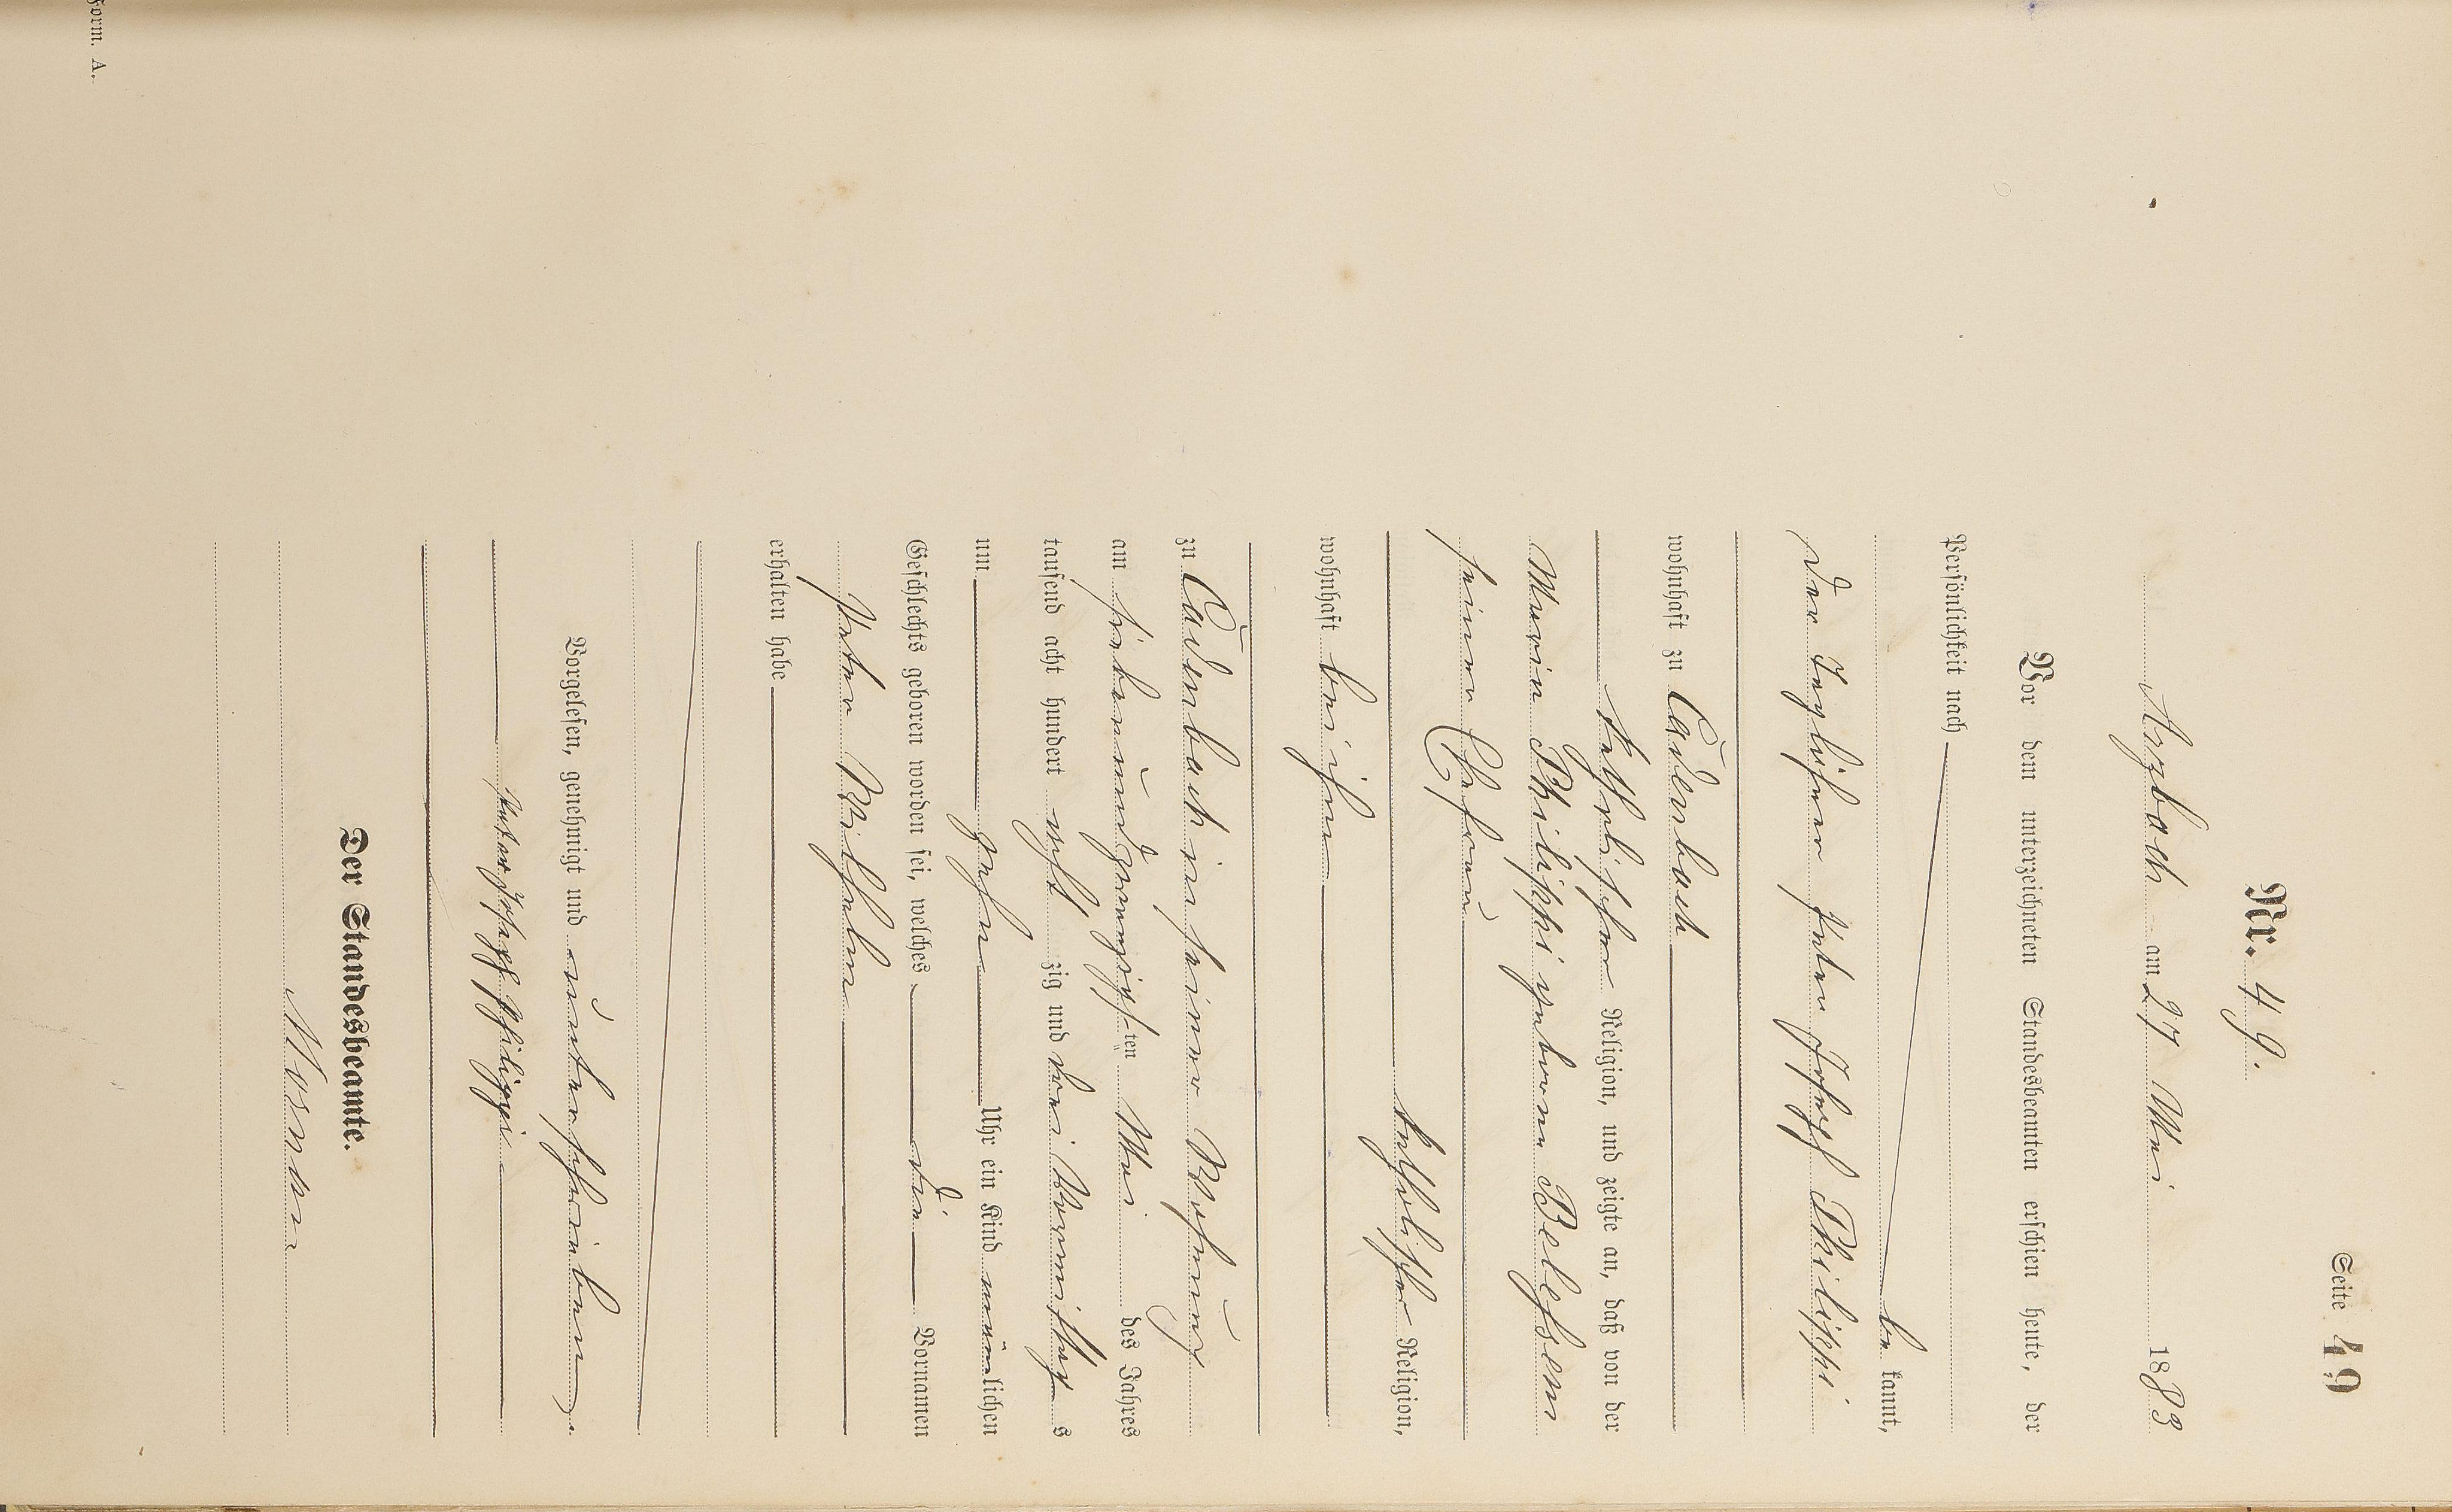 Seite 49
Nr. 49.
Arzbach am 27 Mai 1883
Vor dem unterzeichneten Standesbeamten erschien heute, der
Persönlichkeit nach
be kannt,
der Taglöhner Peter Joseph Philippi
wohnhaft zu Cadenbach
katholischer Religion, und zeigte an, daß von der
Maria Philippi geborene
seiner Ehefrau
katholischer Religion,
wohnhaft bei ihm
zu Cadenbach in seiner Wohnung
am siebenundzwanzigsten Mai des Jahres
tausend acht hundert acht zig und drei Vormittags
um zehn Uhr ein Kind männlichen
Geschlechts geboren worden sei, welches die Vornamen
Peter Wilhelm
erhalten habe
Vorgelesen, genehmigt und unterschrieben.
Peter Joseph Philippi
Der Standesbeamte.
Form. A.